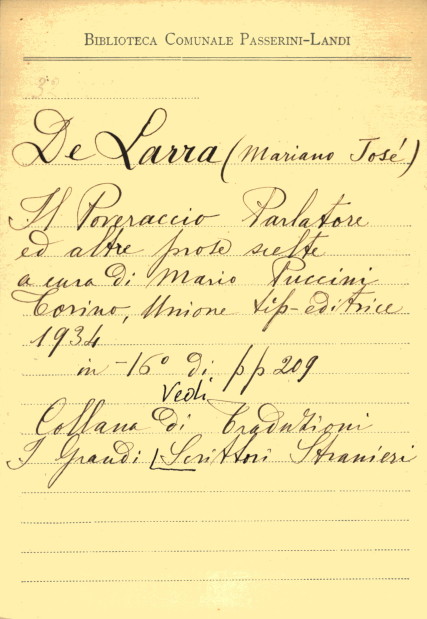 BIBLIOTECA COMUNALE PASSERINI-LANDI
De Larra (Mariano José)
Il Poveraccio Parlatore
ed altre prose scelte
a cura di Mario Puccini
Torino, Unione tip-editrice
1934
in -16° di pp 209
Vedi
Collana di Traduzioni
I Grandi Scrittori Stranieri